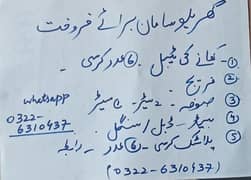 گھریلو سامان برائے فروخت
① کھانے کی ٹیبل ۔ ⑥ عدد کرسی ۔
② فریج ۔
③ صوفہ ۔ 2 سیٹر ۔ 5 سیٹر
④ بیڈ ۔ ڈبل / سنگل ۔
⑤ پلاسٹک کرسی ۔ ⑥ عدد ۔ رابطہ
whatsapp
0322-
6310437
(0322-6310437)